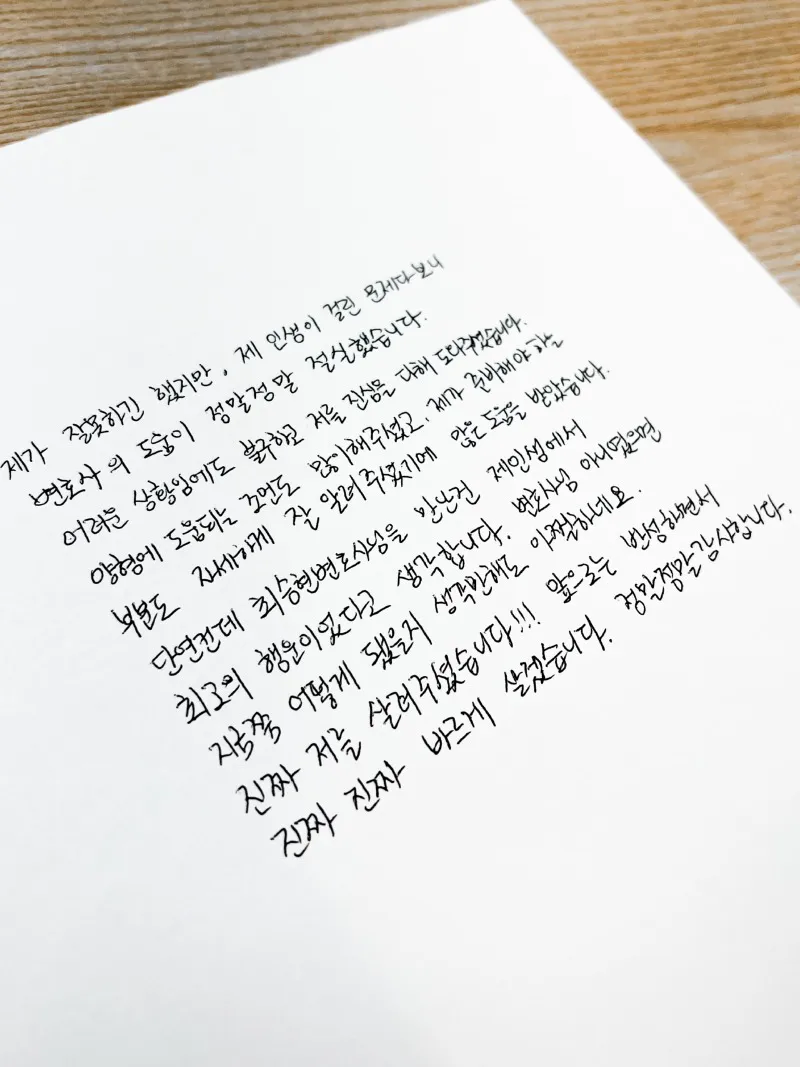 제가 잘못하긴 했지만, 제 인생이 걸린 문제다보니
변호사의 도움이 정말정말 절실했습니다.
어려운 상황임에도 불구하고 저를 진심을 다해 도와주셨습니다.
양형에 도움되는 조언도 많이해주셨고, 제가 준비해야하는
부분도 자세하게 잘 알려주셨기에 많은 도움을 받았습니다.
단연컨데 최승현변호사님을 만난건 제인생에서
최고의 행운이었다고 생각합니다. 변호사님 아니였으면
지금쯤 어떻게 됐을지 생각만해도 아찔하네요.
진짜 저를 살려주셨습니다!!! 앞으로는 반성하면서
진짜 진짜 바르게 살겠습니다. 정말정말감사합니다.